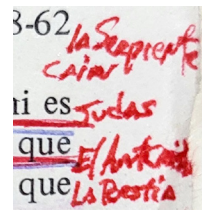 8-62
la Serpiente
Cain
ni es Judas
que El Antecris
que La Bestia